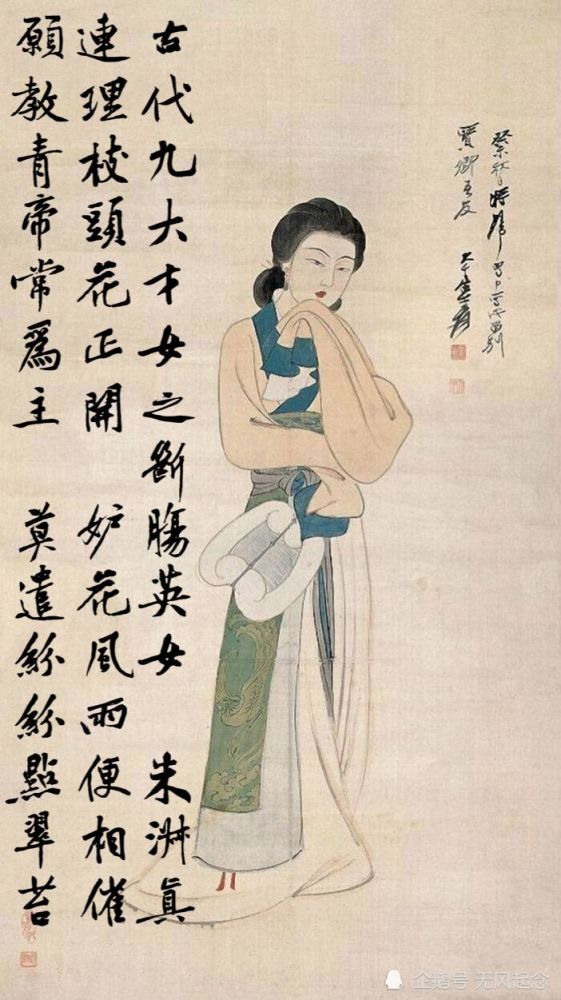 古代九大才女之斷腸英女 朱淑真
連理枝頭花正開 妒花風雨便相催
願教青帝常爲主 莫遣紛紛點翠苔
企鹅号 无风起念